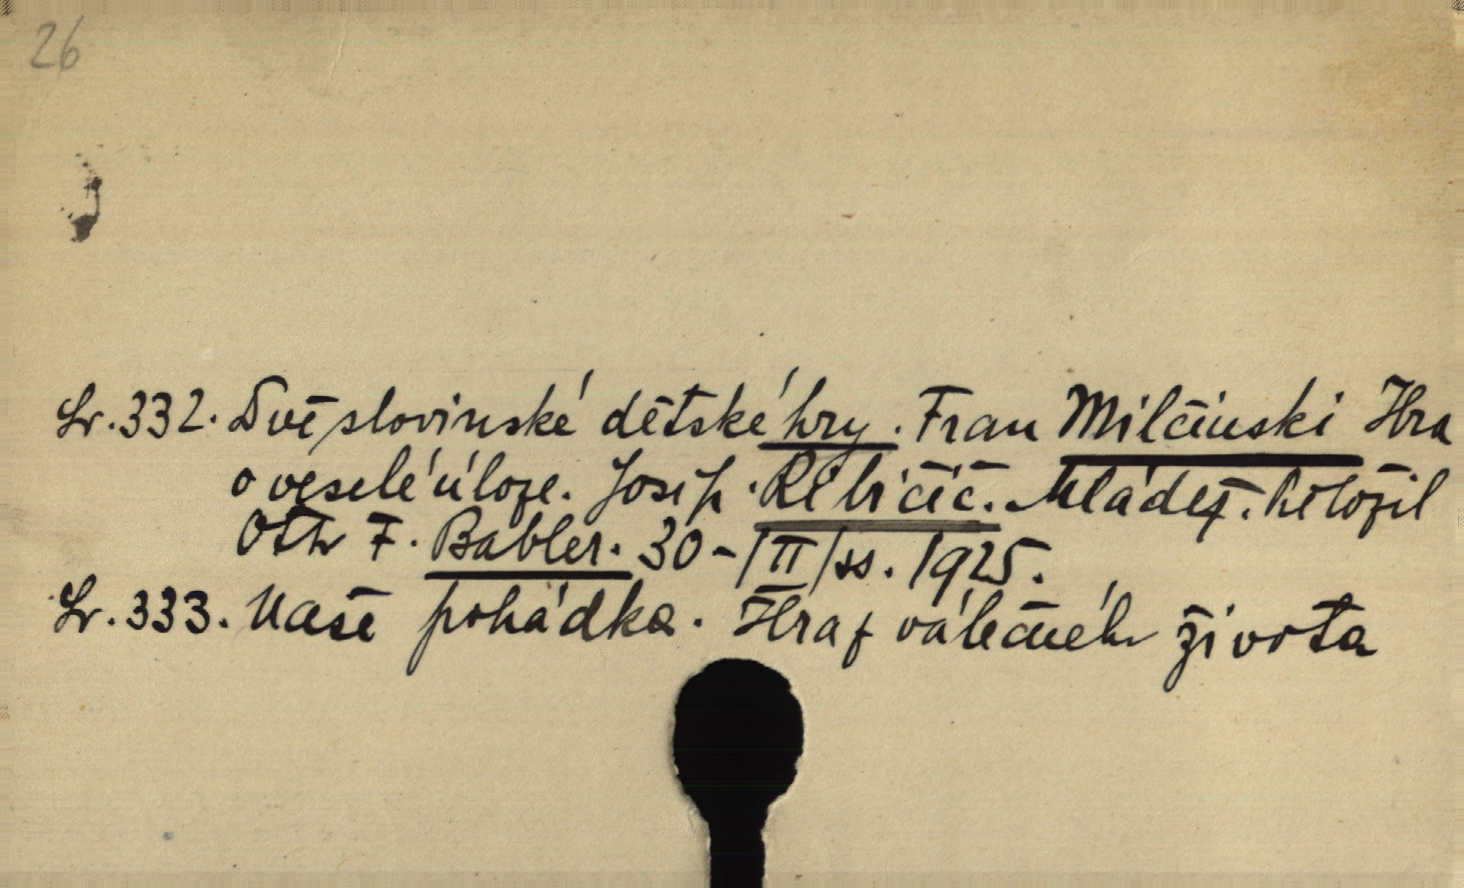 26
Sv. 332. Dvě slovinské dětské hry. Fran Milčinski Hra
o veselé úloze. Josip Ribičič. Mládež. Přeložil
Otto F. Babler. 30 - /II/ss. 1925.
Sv. 333. Naše pohádka. Hra z válečného života